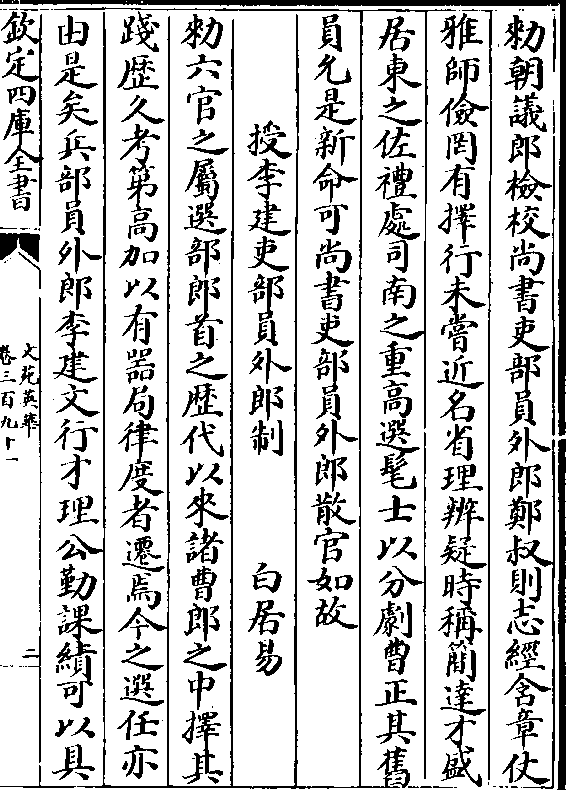 勅朝議郎檢校尚書吏部員外郎鄭叔則志經含章仗
雅師儉罔有擇行未嘗近名省理辨疑時稱簡達才盛
居東之佐禮處司南之重高選髦士以分劇曹正其舊
員允是新命可尚書吏部員外郎散官如故
授李建吏部員外郎制 白居易
勅六官之屬選部郎首之歴代以來諸曹郎之中擇其
踐歴久考第高加以有器局律度者遷焉今之選任亦
由是矣兵部員外郎李建文行才理公勤課績可以具
欽定四庫全書
文苑英華
卷三百九十一
二